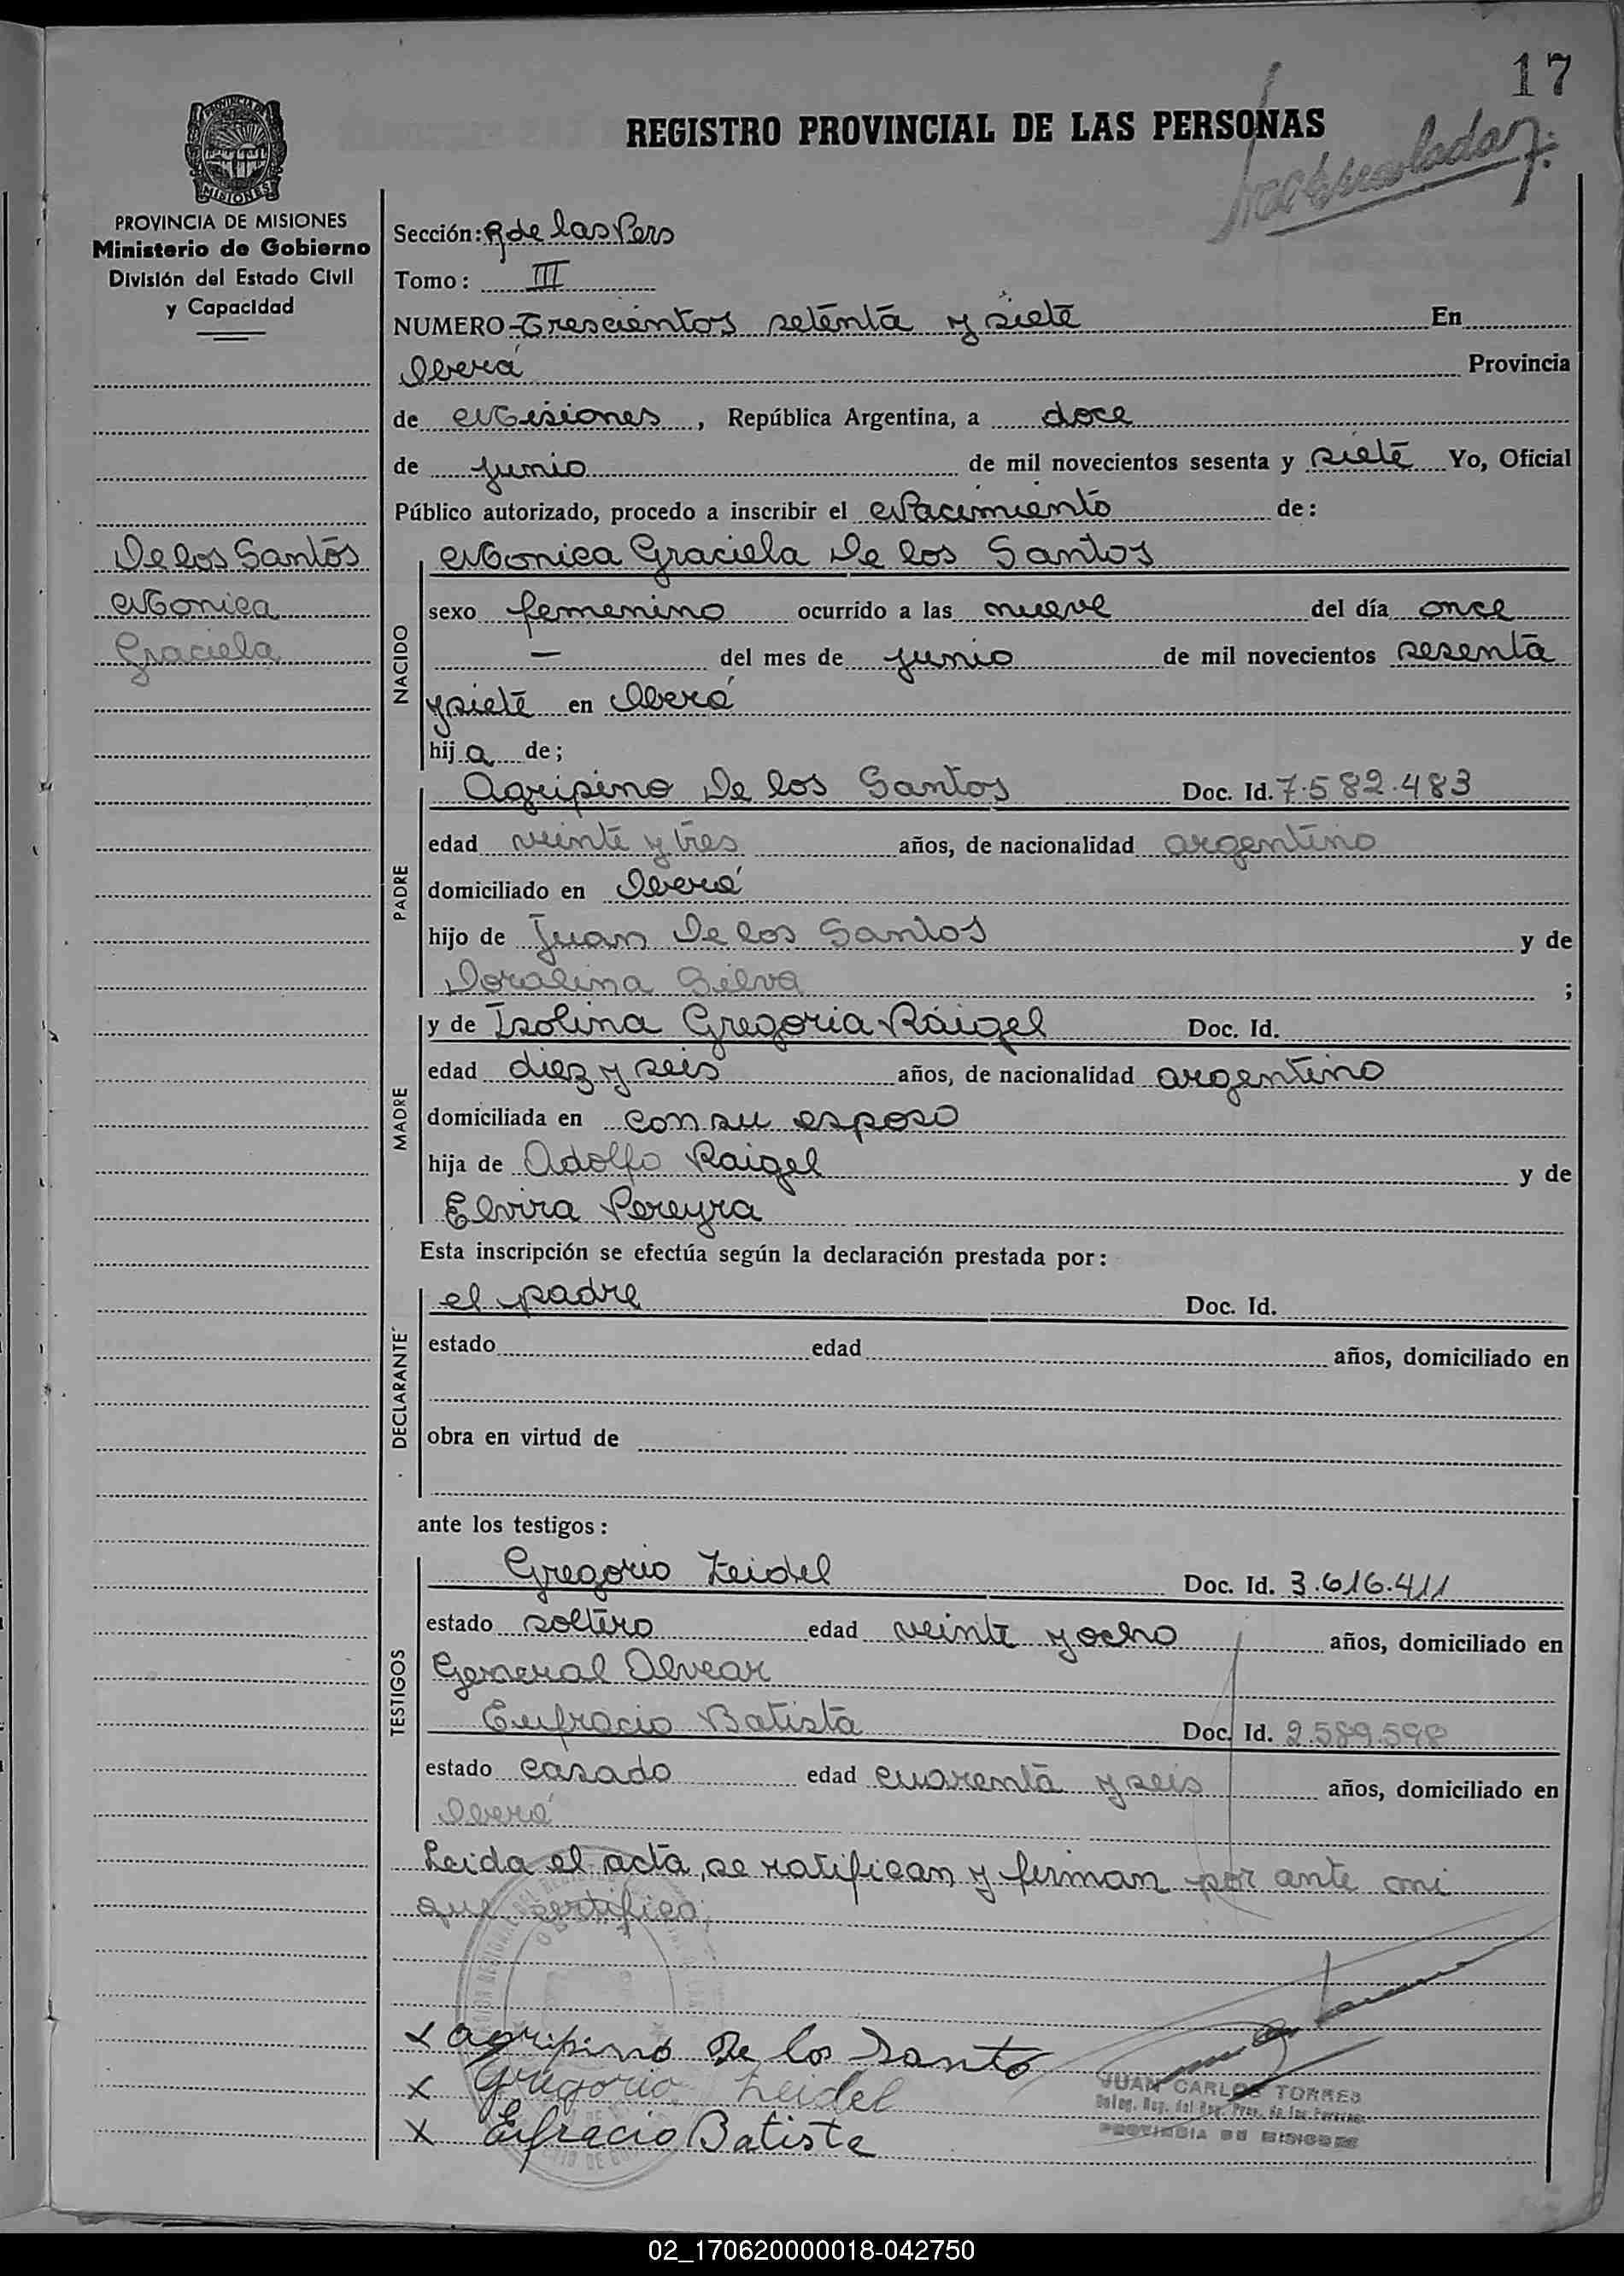 17
REGISTRO PROVINCIAL DE LAS PERSONAS
MISIONES
PROVINCIA DE MISIONES
Ministerio de Gobierno
División del Estado Civil
y Capacidad
Sección: R de las Pers
Tomo: III
NUMERO Trescientos setenta y siete En
Oberá Provincia
de Misiones, República Argentina, a doce
de junio de mil novecientos sesenta y siete Yo, Oficial
Público autorizado, procedo a inscribir el Nacimiento de:
De los Santos
Monica
Graciela
NACIDO
Monica Graciela De los Santos
sexo femenino ocurrido a las nueve del día once
— del mes de junio de mil novecientos sesenta
y siete en Oberá
hija de;
PADRE
Agripino De los Santos Doc. Id. 7.582.483
edad veinte y tres años, de nacionalidad argentino
domiciliado en Oberá
hijo de Juan De los Santos y de
Doralina Silva ;
MADRE
y de Isolina Gregoria Raigel Doc. Id.
edad diez y seis años, de nacionalidad argentino
domiciliada en con su esposo
hija de Adolfo Raigel y de
Elvira Pereyra
Esta inscripción se efectúa según la declaración prestada por:
DECLARANTE
el padre Doc. Id.
estado edad años, domiciliado en
obra en virtud de
ante los testigos:
TESTIGOS
Gregorio Zeidel Doc. Id. 3.616.411
estado soltero edad veinte y ocho años, domiciliado en
General Alvear
Eufracio Batista Doc. Id. 2.589.598
estado casado edad cuarenta y seis años, domiciliado en
Oberá
Leida el acta, se ratifican y firman por ante mi
que certifico;
x agripino De los Santo
x Gregorio Zeidel
x Eufracio Batista
JUAN CARLOS TORRES
Deleg. Reg. del Reg. Prov. de las Personas
PROVINCIA DE MISIONES
02_170620000018-042750